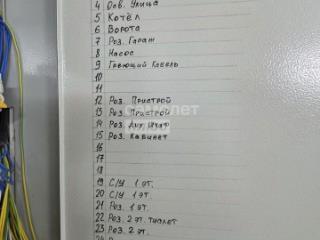 4 Осв. Улица
5 Котёл
6 Ворота
7 Роз. Гараж
8 Насос
9 Греющий Кабель
10
11
12 Роз. Пристрой
13 Роз. Пристрой
14 Роз.
15 Роз. Кабинет
16
17
18
19 С/У 1 эт.
20 С/У 1 эт.
21 Роз. 1 эт.
22 Роз. 2 эт. туалет
23 Роз. 2 эт.
24